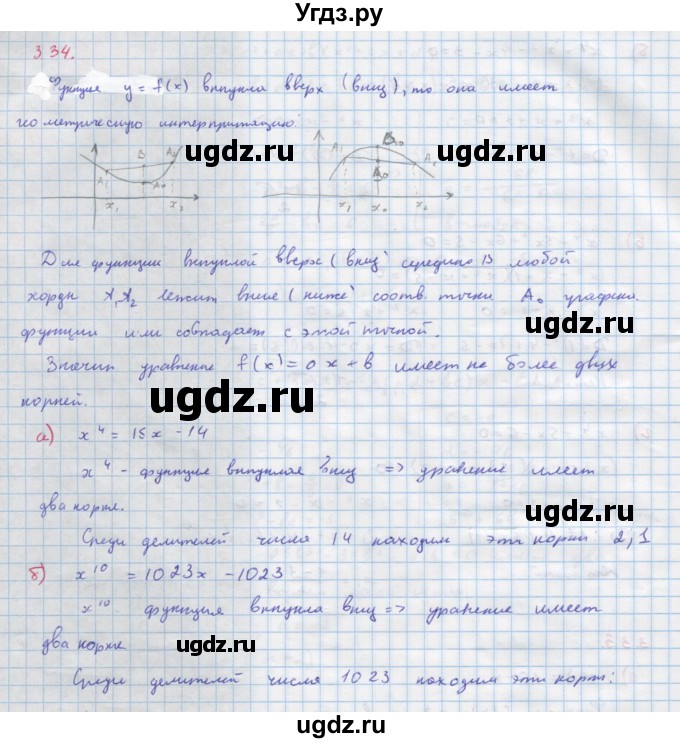 Угдз.ру
334.
Функция y = f(x) выпукла вверх (вниз), то она имеет
геометрическую интерпритацию:
ugdz.ru ugdz.ru
A B A₂ A₁ A₀ x₁ x₂
A₁ B A₀ A₁ x₁ x₀ x₂
Для функции выпуклой вверх (вниз) середина B любой
хорды A₁A₂ лежит выше (ниже) соотв. точки A₀ графика
функции или совпадает с этой точкой.
ugdz.ru ugdz.ru
Значит уравнение f(x) = ax + b имеет не более двух
корней.
ugdz.ru
а) x⁴ = 15x - 14
x⁴ - функция выпуклая вниз => уравнение имеет
два корня.
ugdz.ru
Среди делителей числа 14 находим эти корни 2, 1
б) x¹⁰ = 1023x - 1023
x¹⁰ функция выпукла вниз => уравнение имеет
два корня
ugdz.ru ugdz.ru
Среди делителей числа 1023 находим эти корни:
ugdz.ru